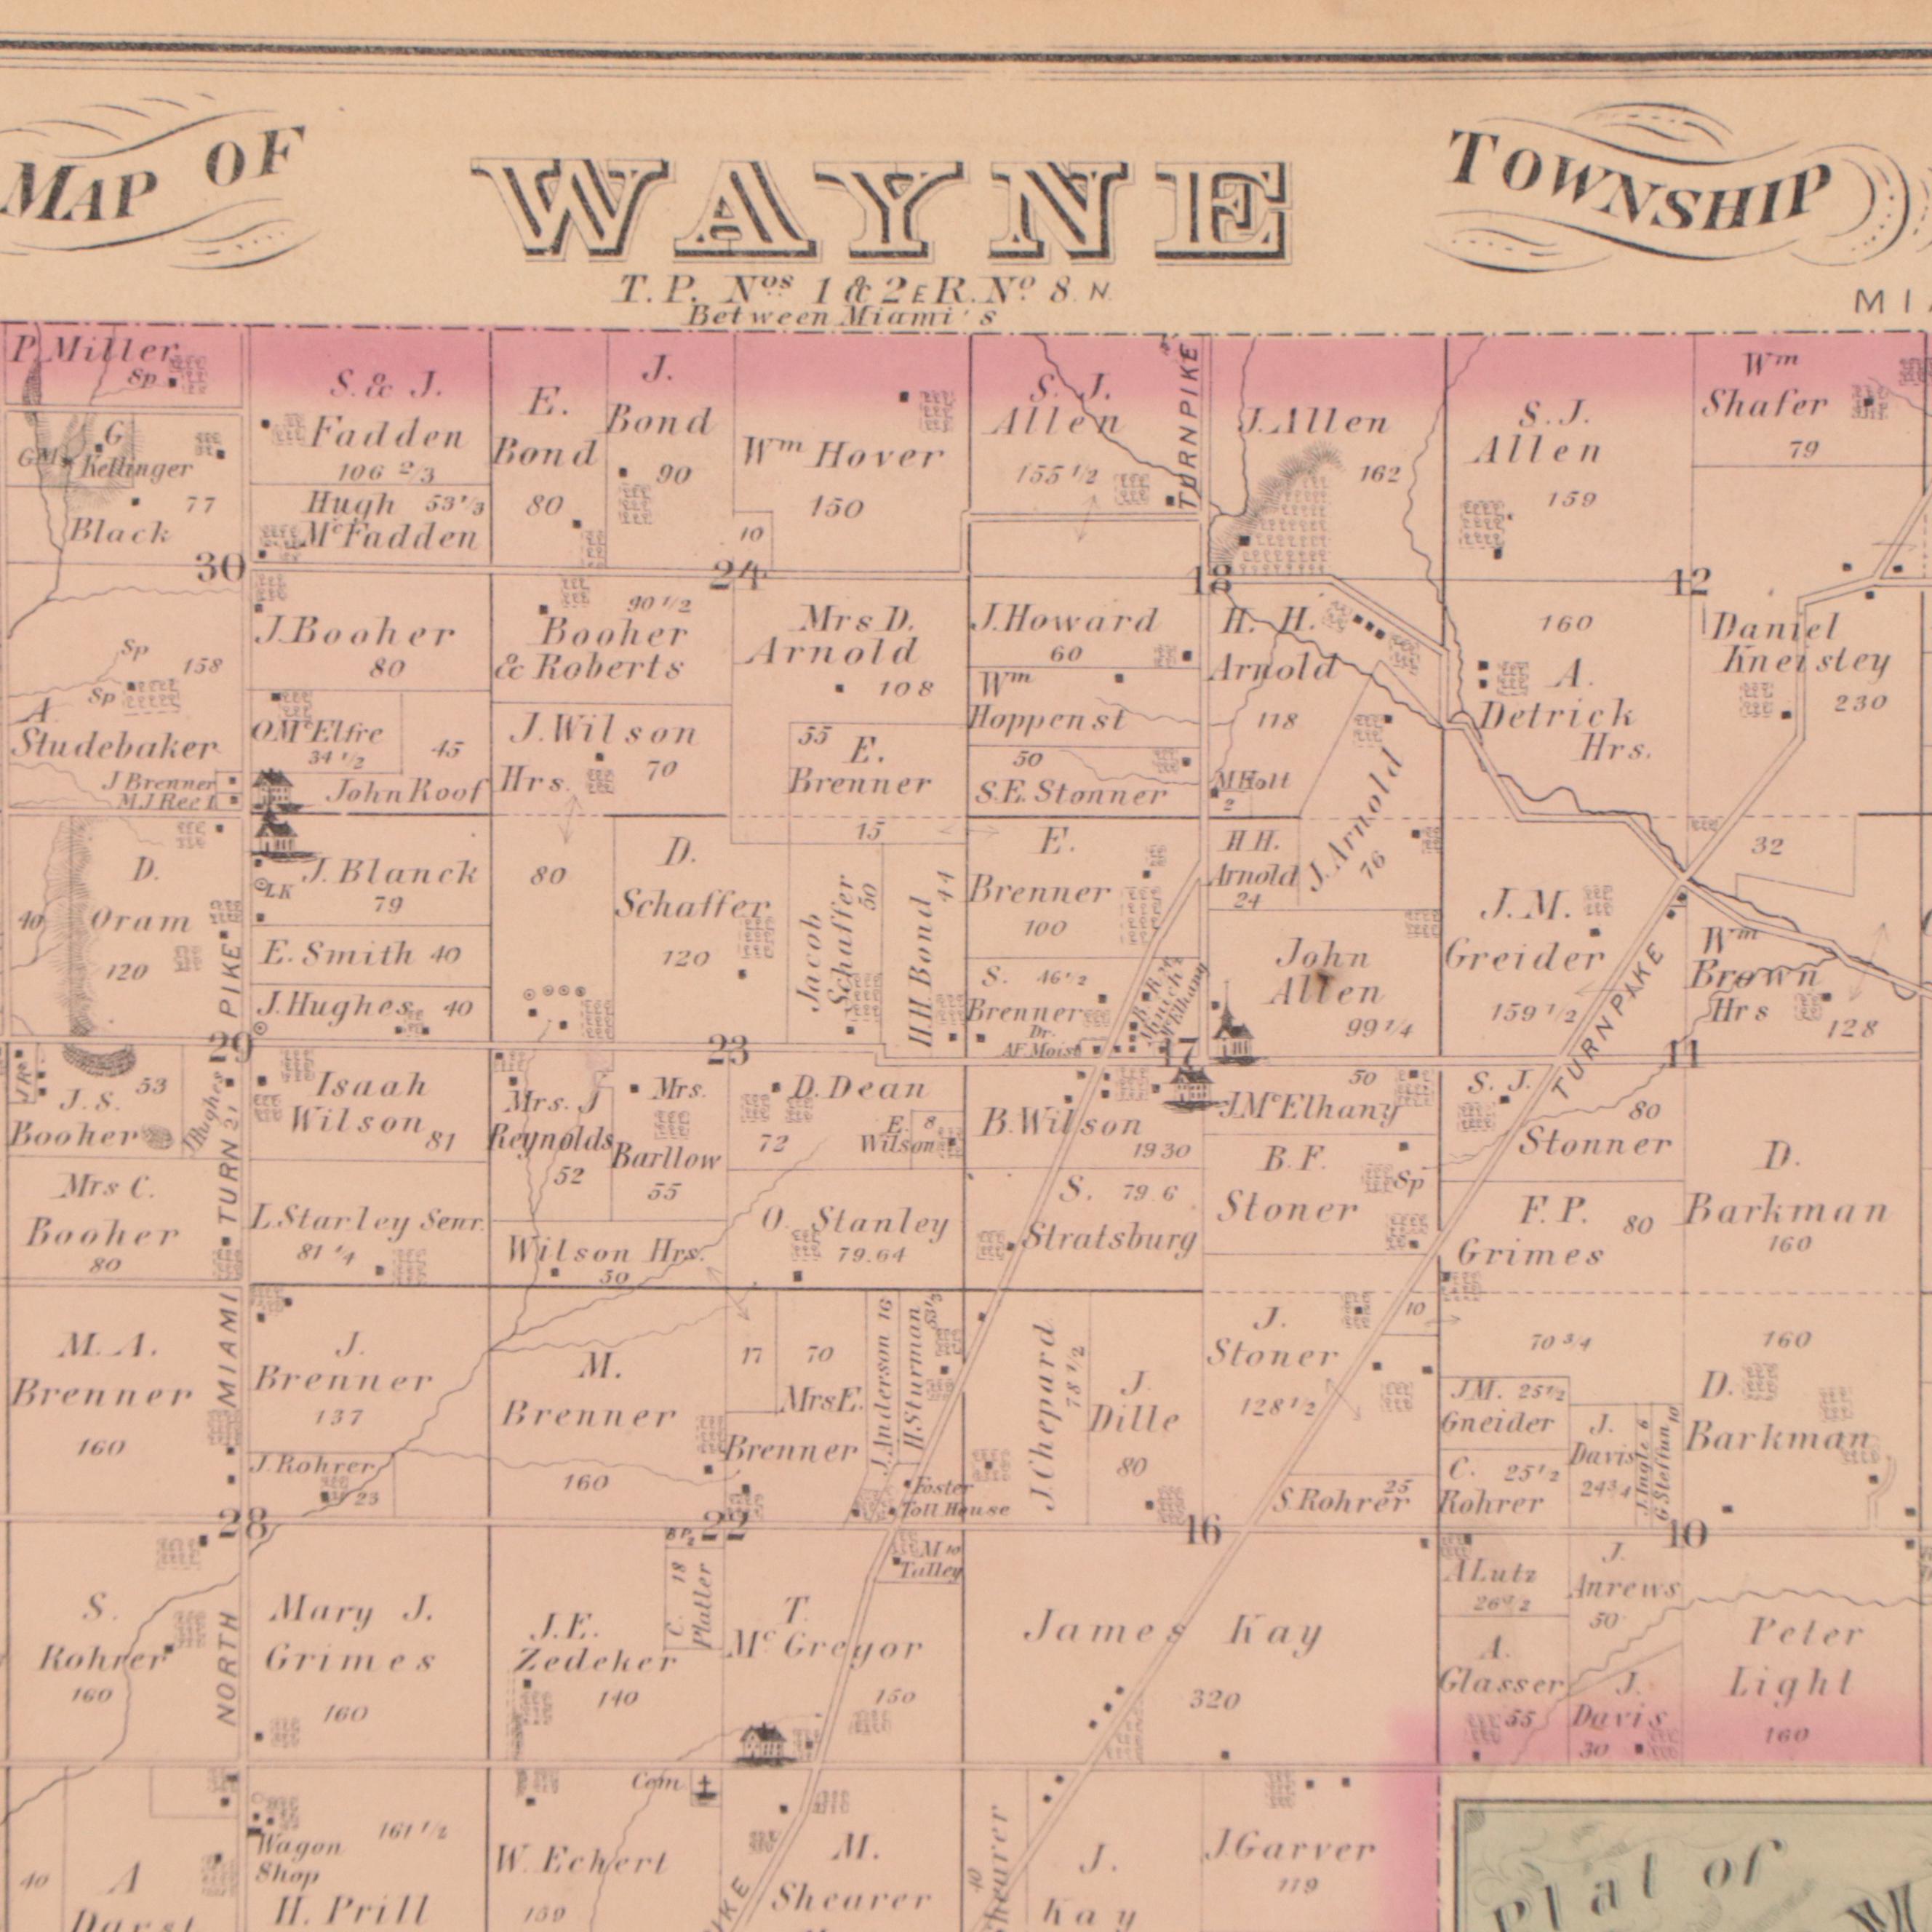 MAP OF
WAYNE
TOWNSHIP
T. P. Nos 1 & 2 E R. No 8. N.
Between Miami's
MI
P. Miller
Sp
S. & J.
Fadden
106 2/3
E.
Bond
80
J.
Bond
90
Wm Hover
150
10
S. J.
Allen
155 1/2
TURNPIKE
J. Allen
162
S. J.
Allen
159
Wm
Shafer
79
G
Kellinger
77
Black
Hugh 53 1/3
McFadden
30
24
18
12
J. Booher
80
90 1/2
Booher
& Roberts
Mrs D.
Arnold
108
J. Howard
60
H. H.
Arnold
118
160
A.
Detrick
Hrs.
Daniel
Kneisley
230
Sp
158
Sp
A
Studebaker
J Brenner
O McElfre
34 1/2
45
John Roof
J. Wilson
Hrs.
70
55
E.
Brenner
Wm
Hoppenst
50
S. E. Stonner
M Holt
2
D.
Oram
40
120
J. Blanck
79
LK
80
D.
Schaffer
120
15
Jacob
Schaffer
50
H. H. Bond
44
E.
Brenner
100
H H.
Arnold
24
J. Arnold
76
J. M.
Greider
159 1/2
32
E. Smith 40
J. Hughes 40
S. 46 1/2
Brenner
Dr.
John
Allen
99 1/4
TURNPIKE
Wm
Brown
Hrs
128
29
23
17
11
J. S.
Booher
53
J Hughes
21
Isaah
Wilson
81
Mrs. J
Reynolds
52
Mrs.
Barllow
55
D. Dean
72
E.
Wilson
8
B. Wilson
1930
50
J. McElhany
S. J.
Stonner
80
Mrs C.
Booher
80
L. Starley Senr.
81 1/4
Wilson Hrs.
50
O. Stanley
79.64
S. 79.6
Stratsburg
B. F.
Stoner
Sp
F. P.
Grimes
80
D.
Barkman
160
NORTH MIAMI TURN PIKE
M. A.
Brenner
160
J.
Brenner
137
M.
Brenner
160
17
70
Mrs E.
Brenner
J. Anderson 16
H. Sturman
53 1/3
J. Chepard
78 1/2
J.
Dille
80
J.
Stoner
128 1/2
10
70 3/4
160
D.
Barkman
J. Rohrer
23
Foster
Toll House
S. Rohrer
25
J M. 25 1/2
Gneider
C. 25 1/2
Rohrer
J.
Davis
24 3/4
28
22
16
10
S.
Rohrer
160
Mary J.
Grimes
160
J. E.
Zedeker
140
C. 18
Platter
T.
McGregor
150
M 10
Talley
James Kay
320
A Lutz
26 1/2
J.
Anrews
50
A.
Glasser
55
J.
Davis
30
Peter
Light
160
40
A
Darst
Wagon
Shop
161 1/2
H. Prill
W. Echert
159
Cem
PIKE
M.
Shearer
40
J.
Kay
J. Garver
119
Plat of